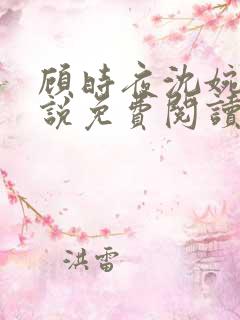 顾时夜沈婉
說免費閱讀
洪雷